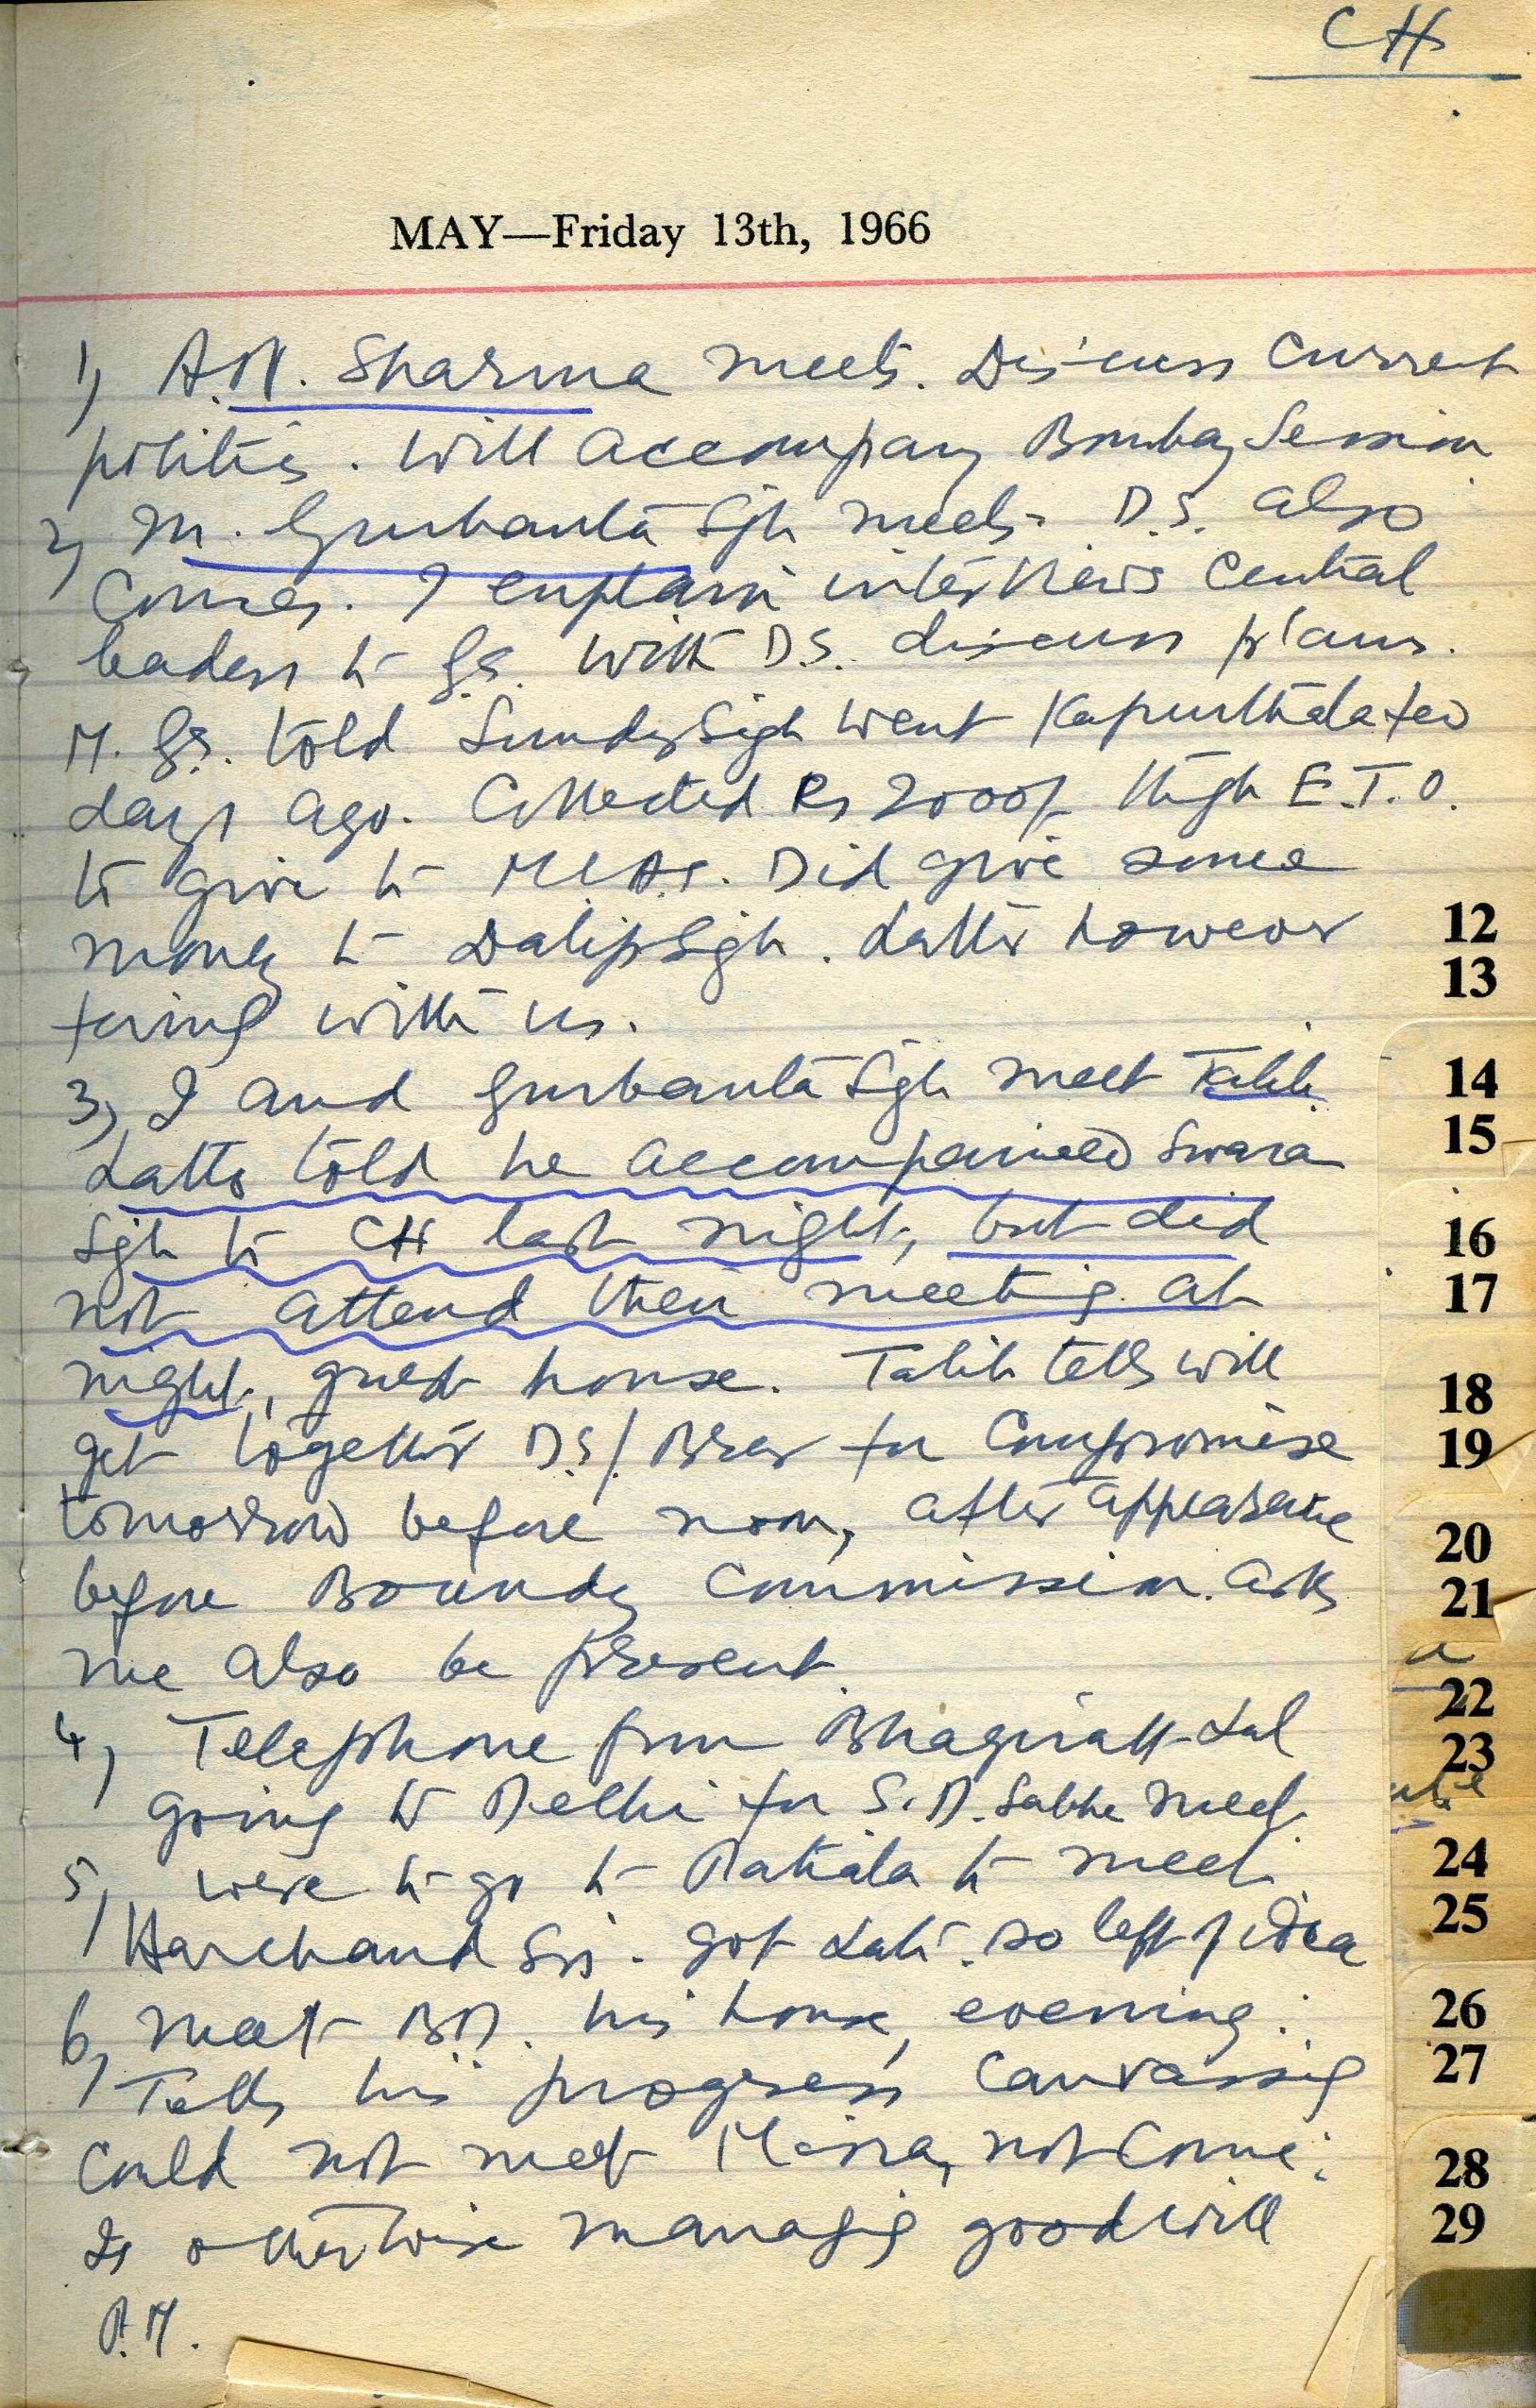 CH
MAY—Friday 13th, 1966
1) A.N. Sharma meets. Discuss current
politics. Will accompany Bombay Session
2) M. Gurbanta Sgh meets. D.S. also
comes. I explain interviews Central
leaders to G.S. With D.S. discuss plans.
M. G.S. told Sunder Sigh went Kapurthala few
days ago. Collected Rs 2000/- thgh E.T.O.
to give to MLAs. Did give some
money to Dalip Sgh. Latter however
firing with us.
3) I and Gurbanta Sgh meet Talib
Latter told he accompanied Swaran
Sgh to CH last night, but did
not attend their meeting at
night, guest house. Talib tells will
get together D.S./Brar for compromise
tomorrow before noon, after appearance
before Boundy Commission. Asks
me also be present
4) Telephone from Bhagirath Lal
going to Delhi for S.D. Sabha meet.
5) Were to go to Patiala to meet
Harchand Sgh. got late. so left of idea
6) Meet BD. his house, evening.
Tells his progress canvassing
Could not meet Misra, not come.
Is otherwise managig goodwill
P.M.
12
13
14
15
16
17
18
19
20
21
22
23
24
25
26
27
28
29